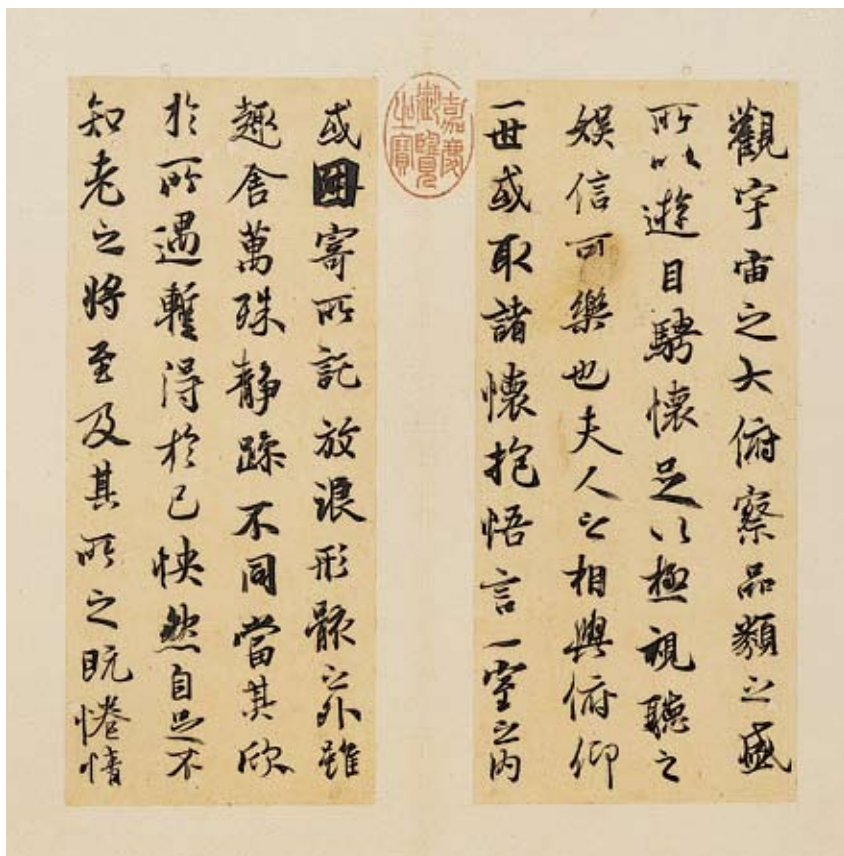 觀宇宙之大俯察品類之盛
所以遊目騁懷足以極視聽之
娛信可樂也夫人之相與俯仰
一世或取諸懷抱悟言一室之內
嘉慶御覽之寶
或因寄所託放浪形骸之外雖
趣舍萬殊靜躁不同當其欣
於所遇暫得於己怏然自足不
知老之將至及其所之既惓情